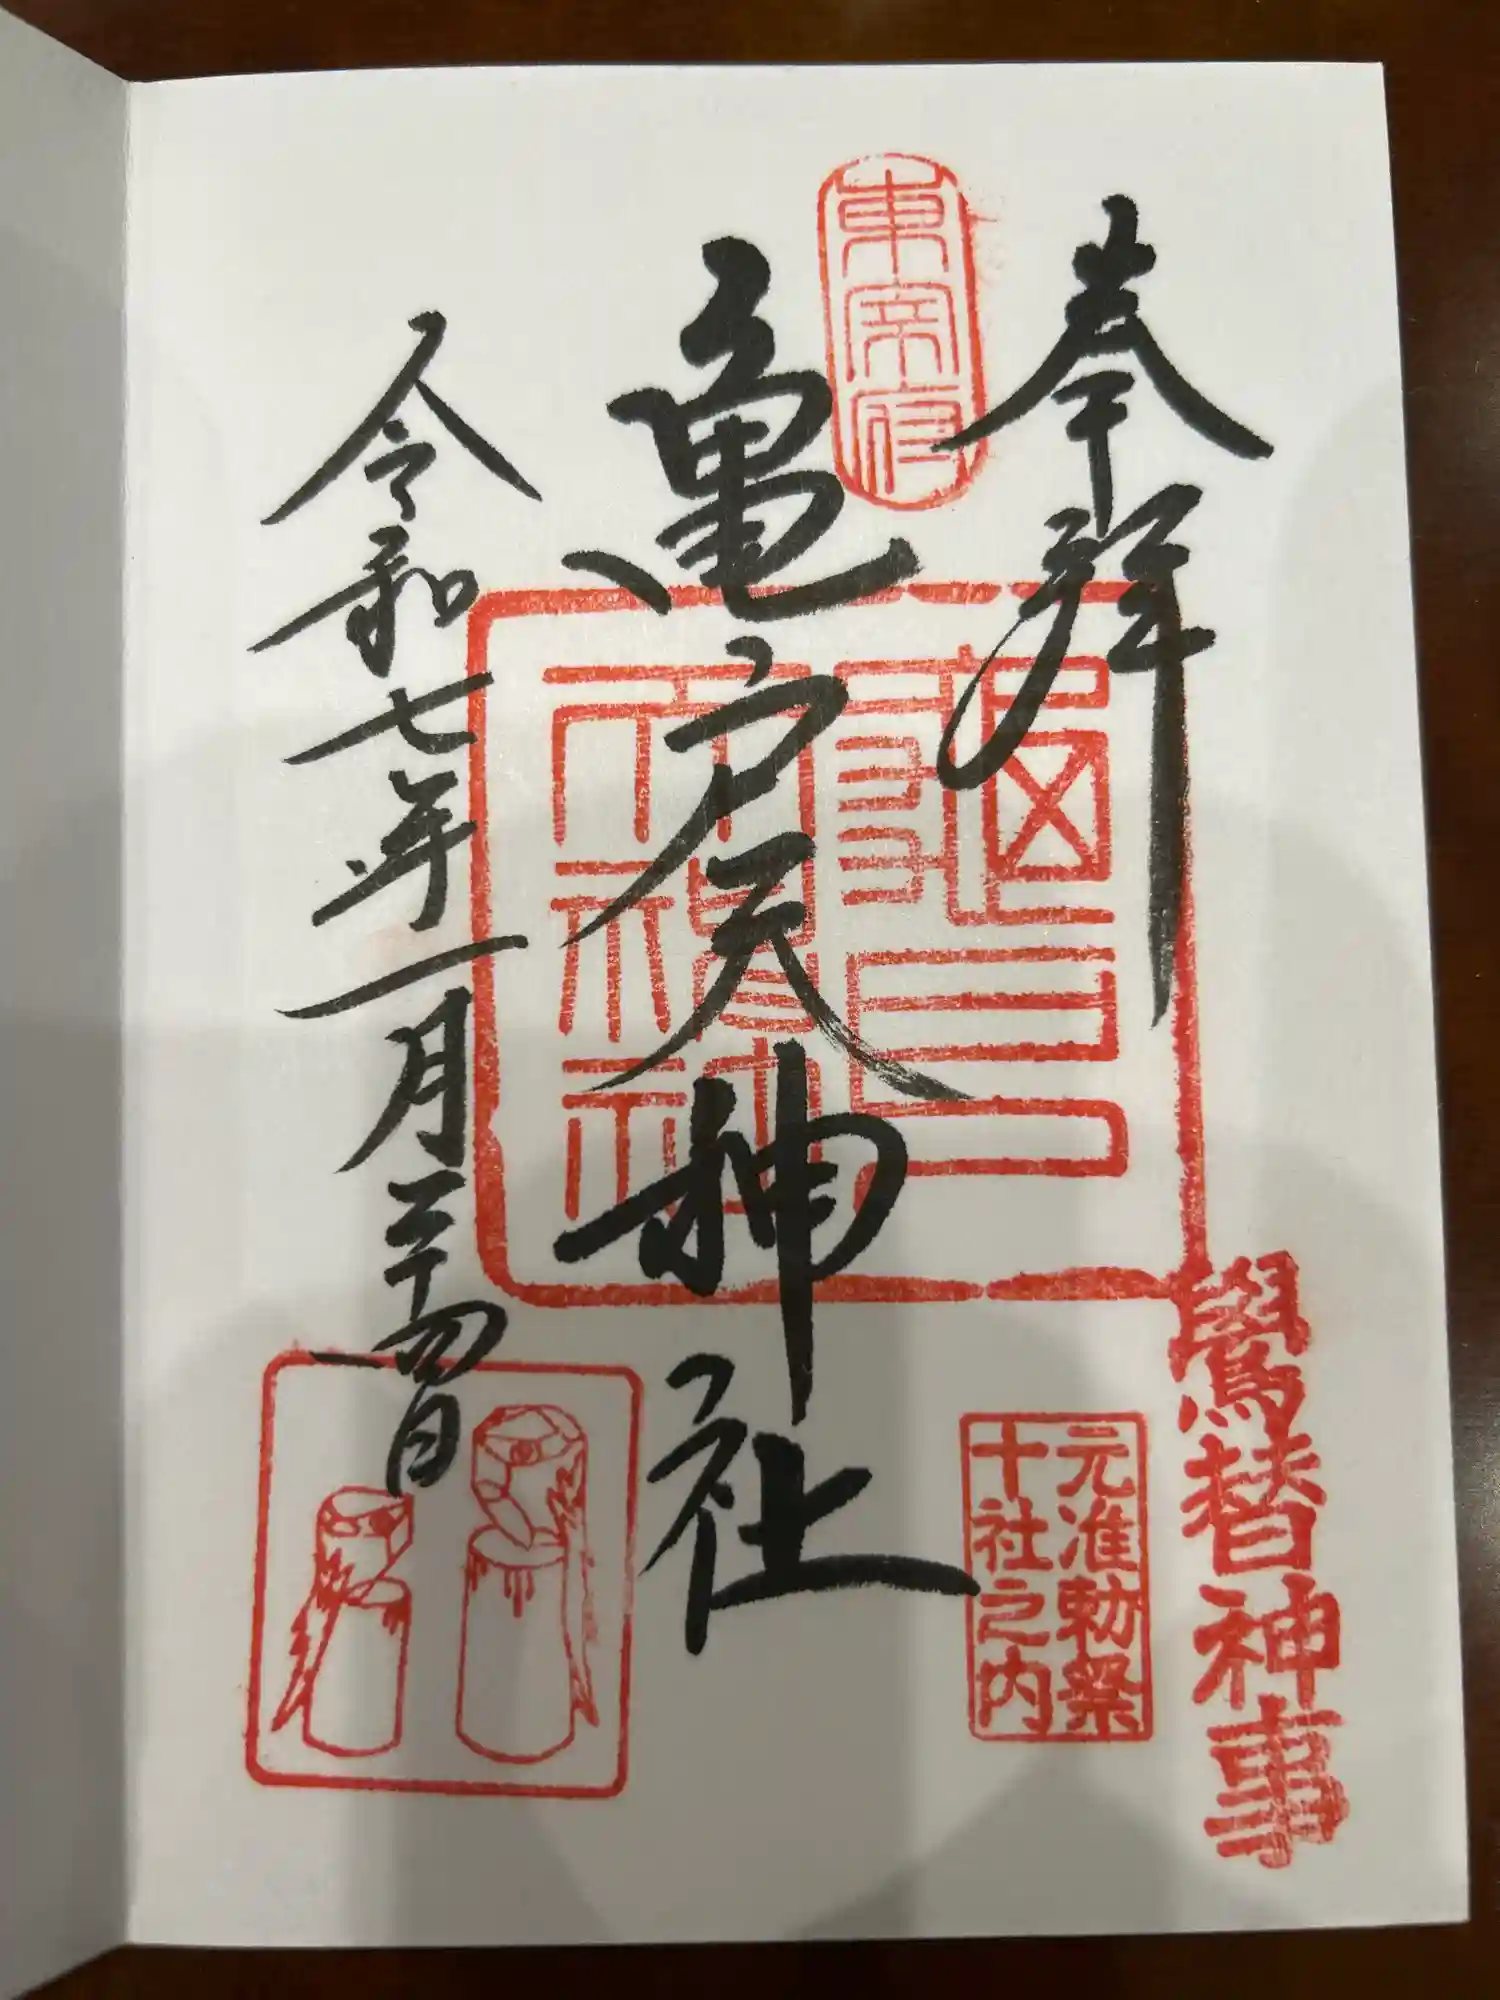 奉拝
東宰府
亀戸天神社
令和七年一月二十四日
鷽替神事
元准勅祭
十社之内